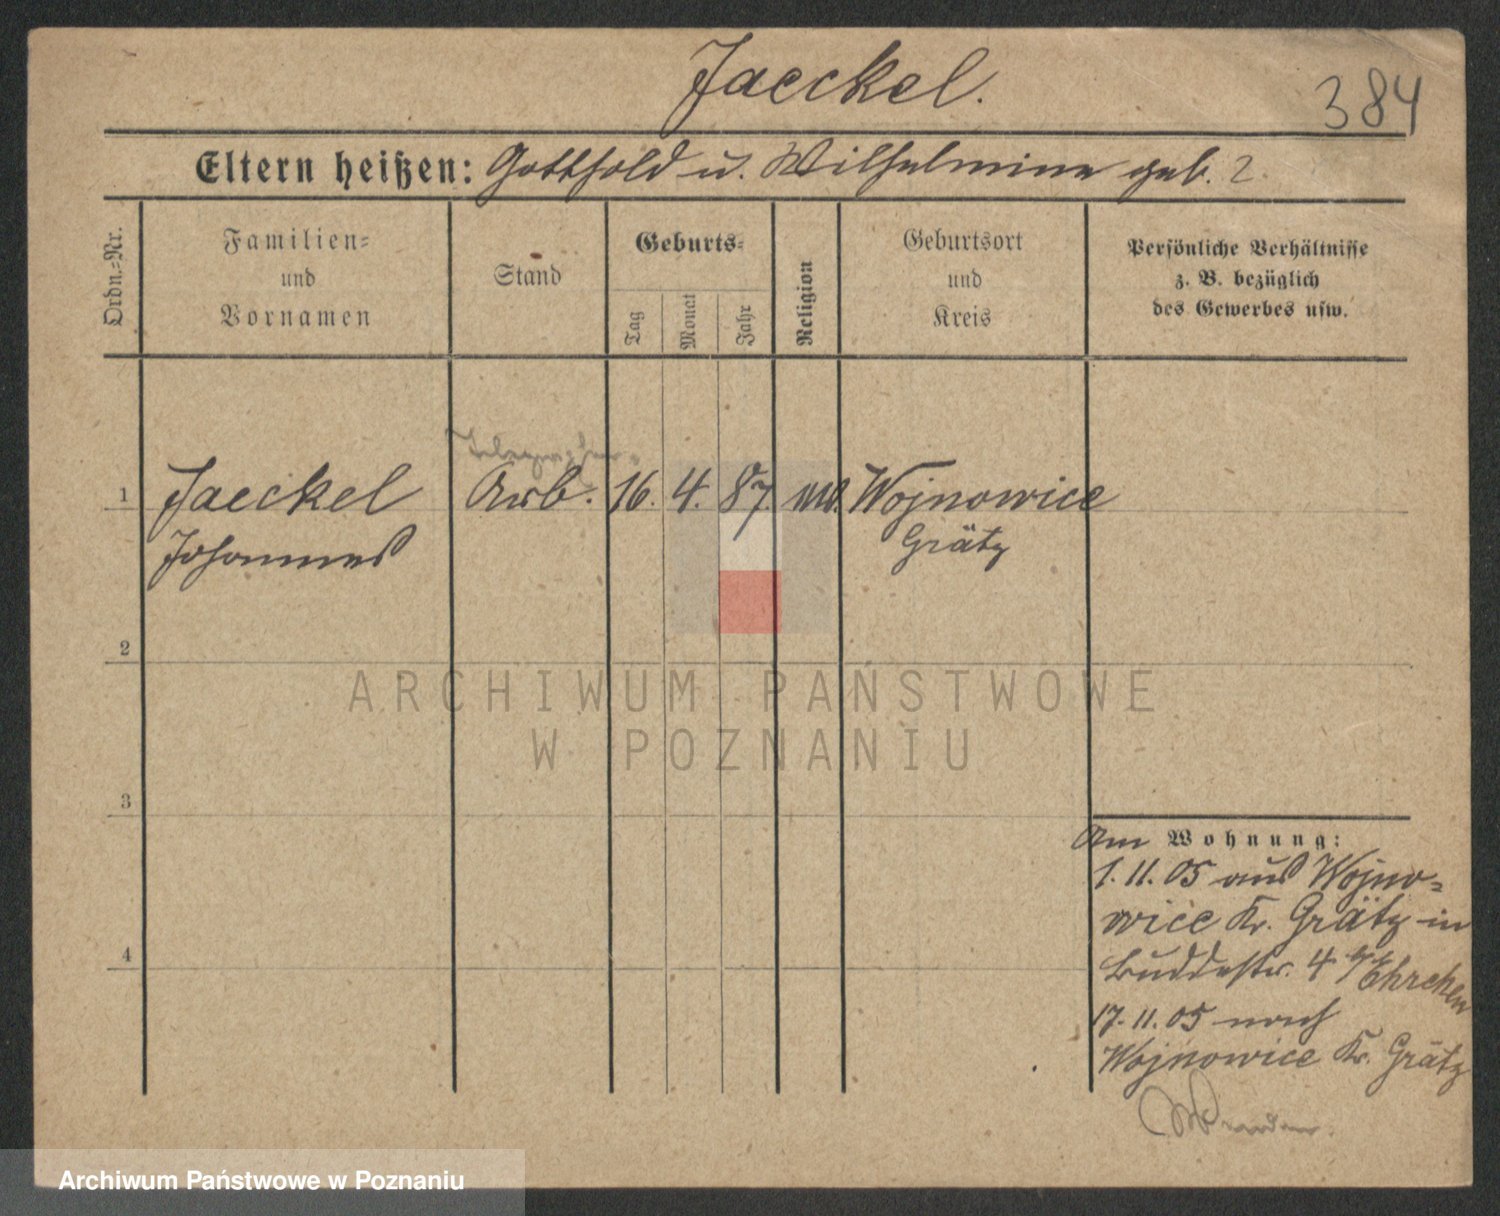 Jaeckel.
384
Eltern heißen: Gotthold u. Wilhelmine geb. ?.
Ordn.-Nr.
Familien-
und
Vornamen
Stand
Geburts-
Tag
Monat
Jahr
Religion
Geburtsort
und
Kreis
Persönliche Verhältnisse
z. B. bezüglich
des Gewerbes usw.
1 Jaeckel Arb. 16. 4. 87. Wojnowice
Johannes Grätz
2
3
4
Am Wohnung:
1. 11. 05 aus Wojno-
wice Kr. Grätz in
Buddestr. 4 b/ Ehrchen
17. 11. 05 nach
Wojnowice Kr. Grätz
ARCHIWUM PAŃSTWOWE
W POZNANIU
Archiwum Państwowe w Poznaniu